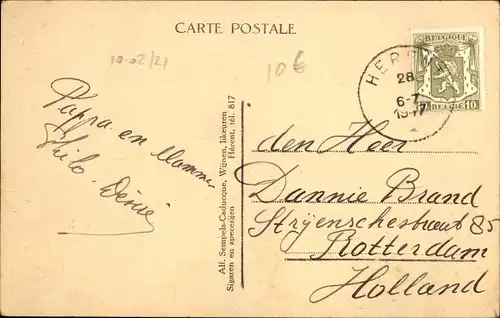 CARTE POSTALE
10-02/21
10€
BELGIQUE
BELGIË 10
28
6-7
1947
Pappa en Mamma
Thilo - Denie
Alf. Sempels-Caducque, Wijnen, likeuren
Sigaren en specerijen Herent, tel. 817
den Heer
Dannie Brand
Strijenschestraat 85
Rotterdam
Holland